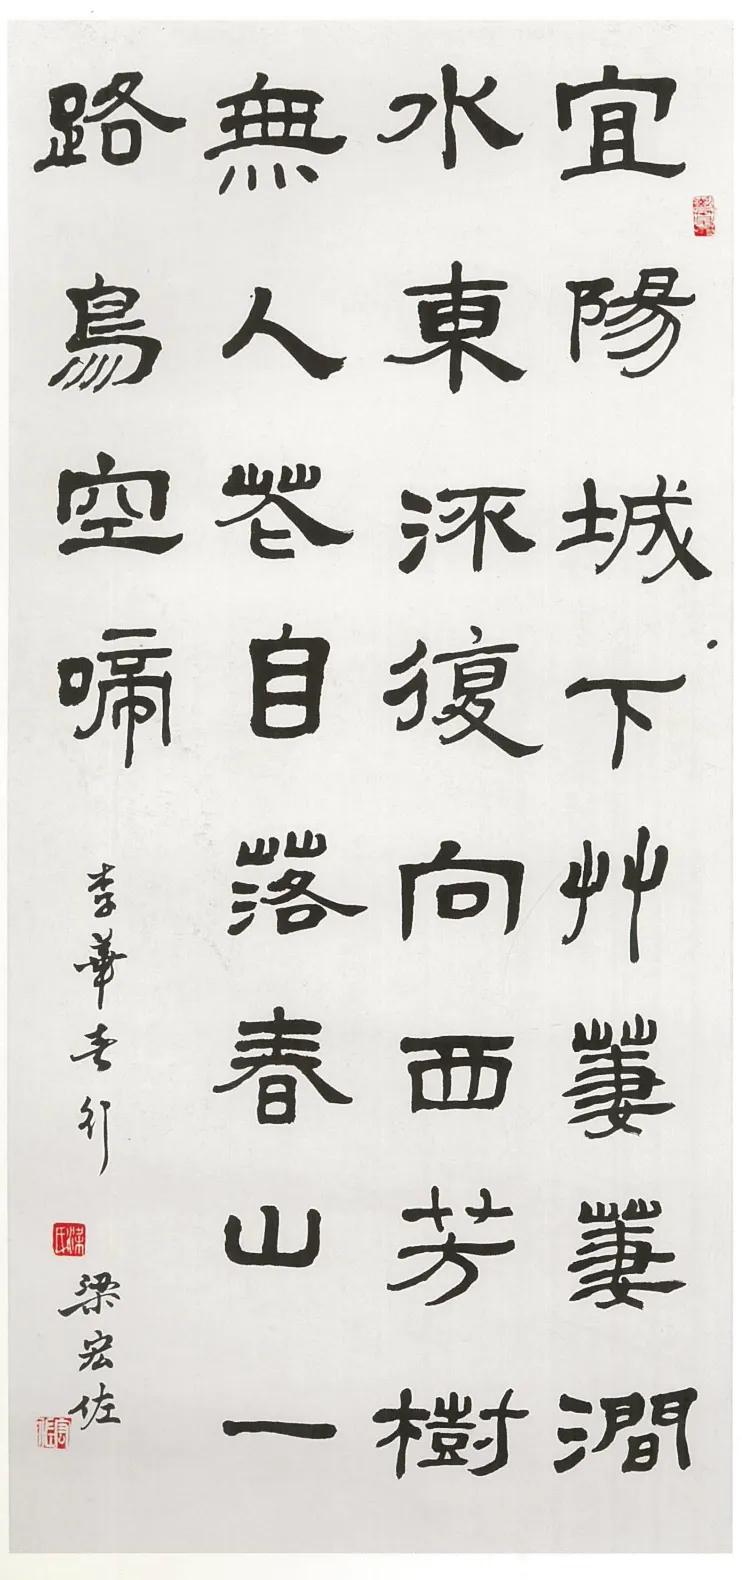 宜陽城下艸萋萋澗
水東流復向西芳樹
無人花自落春山一
路鳥空啼
李華春行
梁氏
梁宏佐
宏佐